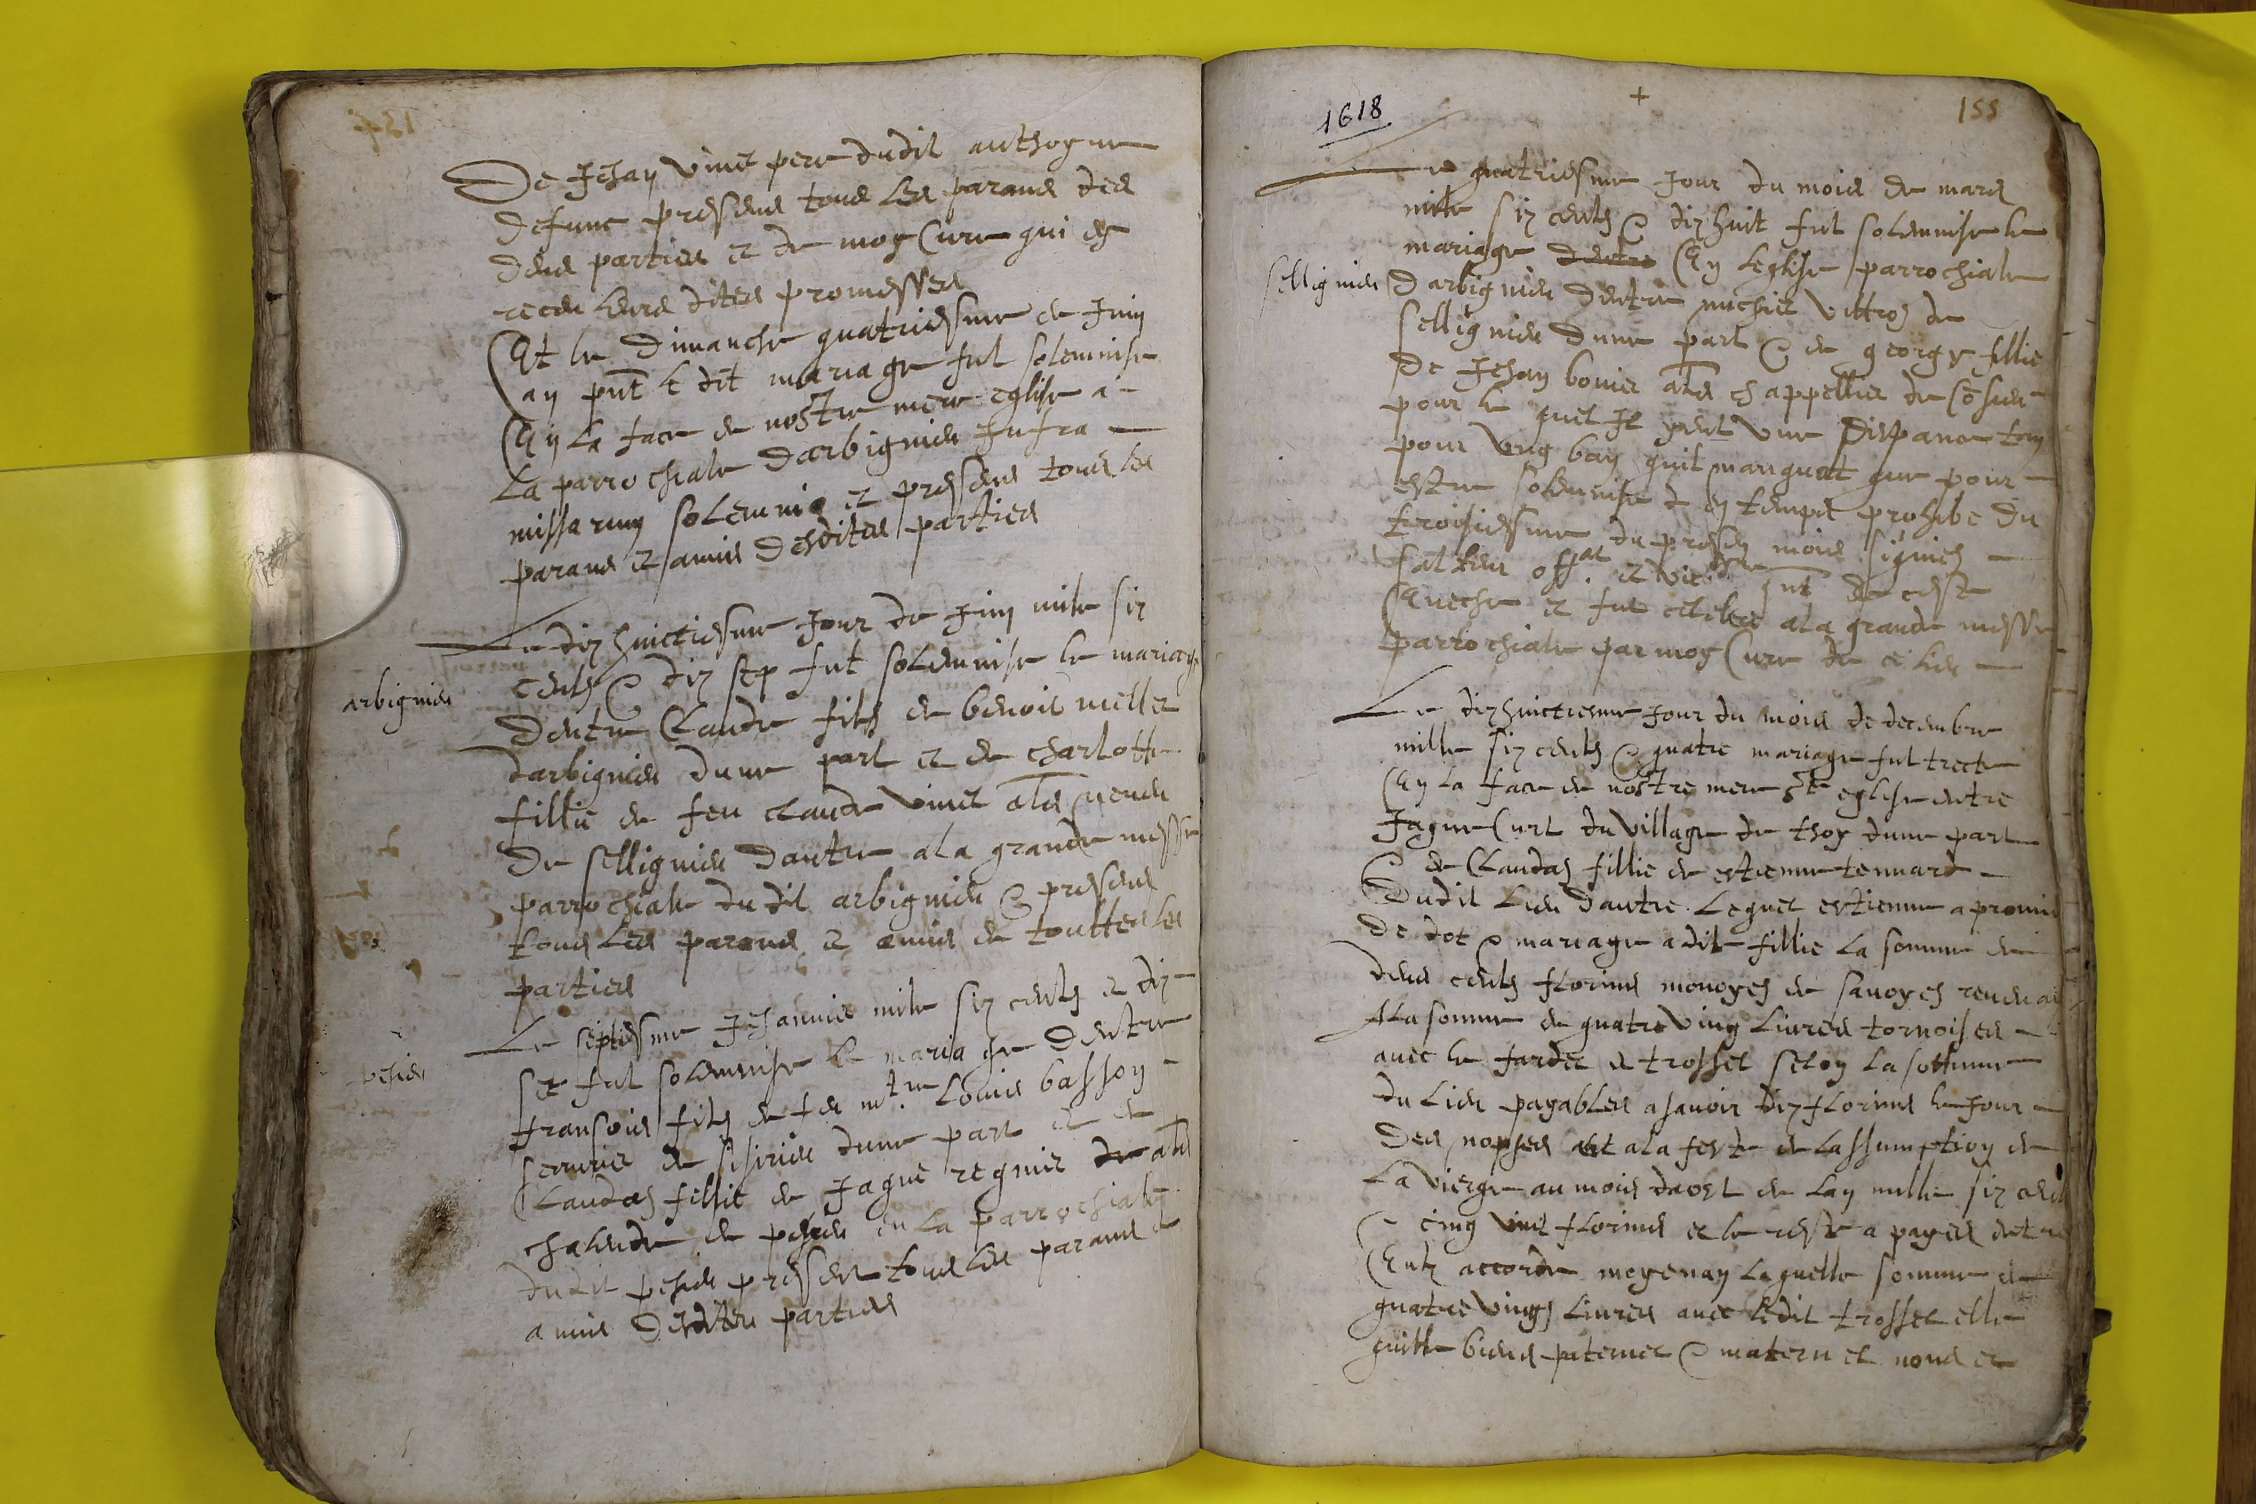 De Jehan vinet pere dudit anthoyne
defunc presens tous les parans des
deus parties et de moy Cure qui ey
receu leurs dites promesses
Et le dimanche quatriesme de Juin
an pnt le dit mariage fut solemnise
En la face de nostre mere eglise a
la parrochiale darbignieu Infra
missarum solemnia et presens tous les
parans et amis desdites parties
arbignieu
Le dix huictiesme Jour de Juin mile six
cents & dix sep fut solemnise le mariage
dentre Claude fils de benoit mellet
darbignieu dune part et de charlotte
fillie de feu claude vinet als
de sellignieu dautre a la grande messe
parrochiale du dit arbignieu & presens
tous les parans et amis de touttes les
parties
Le septiesme Jehanvie mile six cents et dix
set fut solemnise le mariage dentre
fransois fils de feu mtre Louis basson
serrurie de dune part et de
Claudaz fillie de Jaque regnie de als
chalende de pesieu en la parrochiale
dudit pesieu presens tous les parans et
amis desdites parties
pesieu
1618
+
155
Le quatriesme Jour du mois de mars
mile six cents & dix huit fut solemnise le
mariage dentre En leglise parrochiale
sellignieu
Darbignieu dentre michiel vittoz de
sellignieu dune part & de george fillie
De Jehan bovier als chappellier de
pour le quel Il heut une dispance tan
pour ung ban quil manquat que pour
estre solemnise en temps prohibe du
troisiesme du presen mois signies
offal et vic gnl de cest
Eveche et fut celebre a la grande messe
parrochiale par moy Cure de ce lieu
Le dix huictiesme Jour du mois de decembre
mille six cents & quatre mariage fut trecte
En la face de nostre mere Ste eglise entre
Jaque Curt du village de thoy dune part
& de Claudaz fillie de estienne tenvard
Dudit lieu dautre Lequel estienne a promis
De dot & mariage a dite fillie la somme de
deus cents florins monoyes de savoyes
A la somme de quatre ving livres tornoises
avec le fardel et trossel selon la
du lieu payables a savoir dix florins le Jour
des nopses et a la feste de lassumption de
La vierge au mois daost de lan mille six cents
& cinq vint florins et le reste a payes entre
Eulx accorde moyenan laquelle somme de
quatre vings livres avec ledit trossel elle
quitte biens paternel & maternel nons et